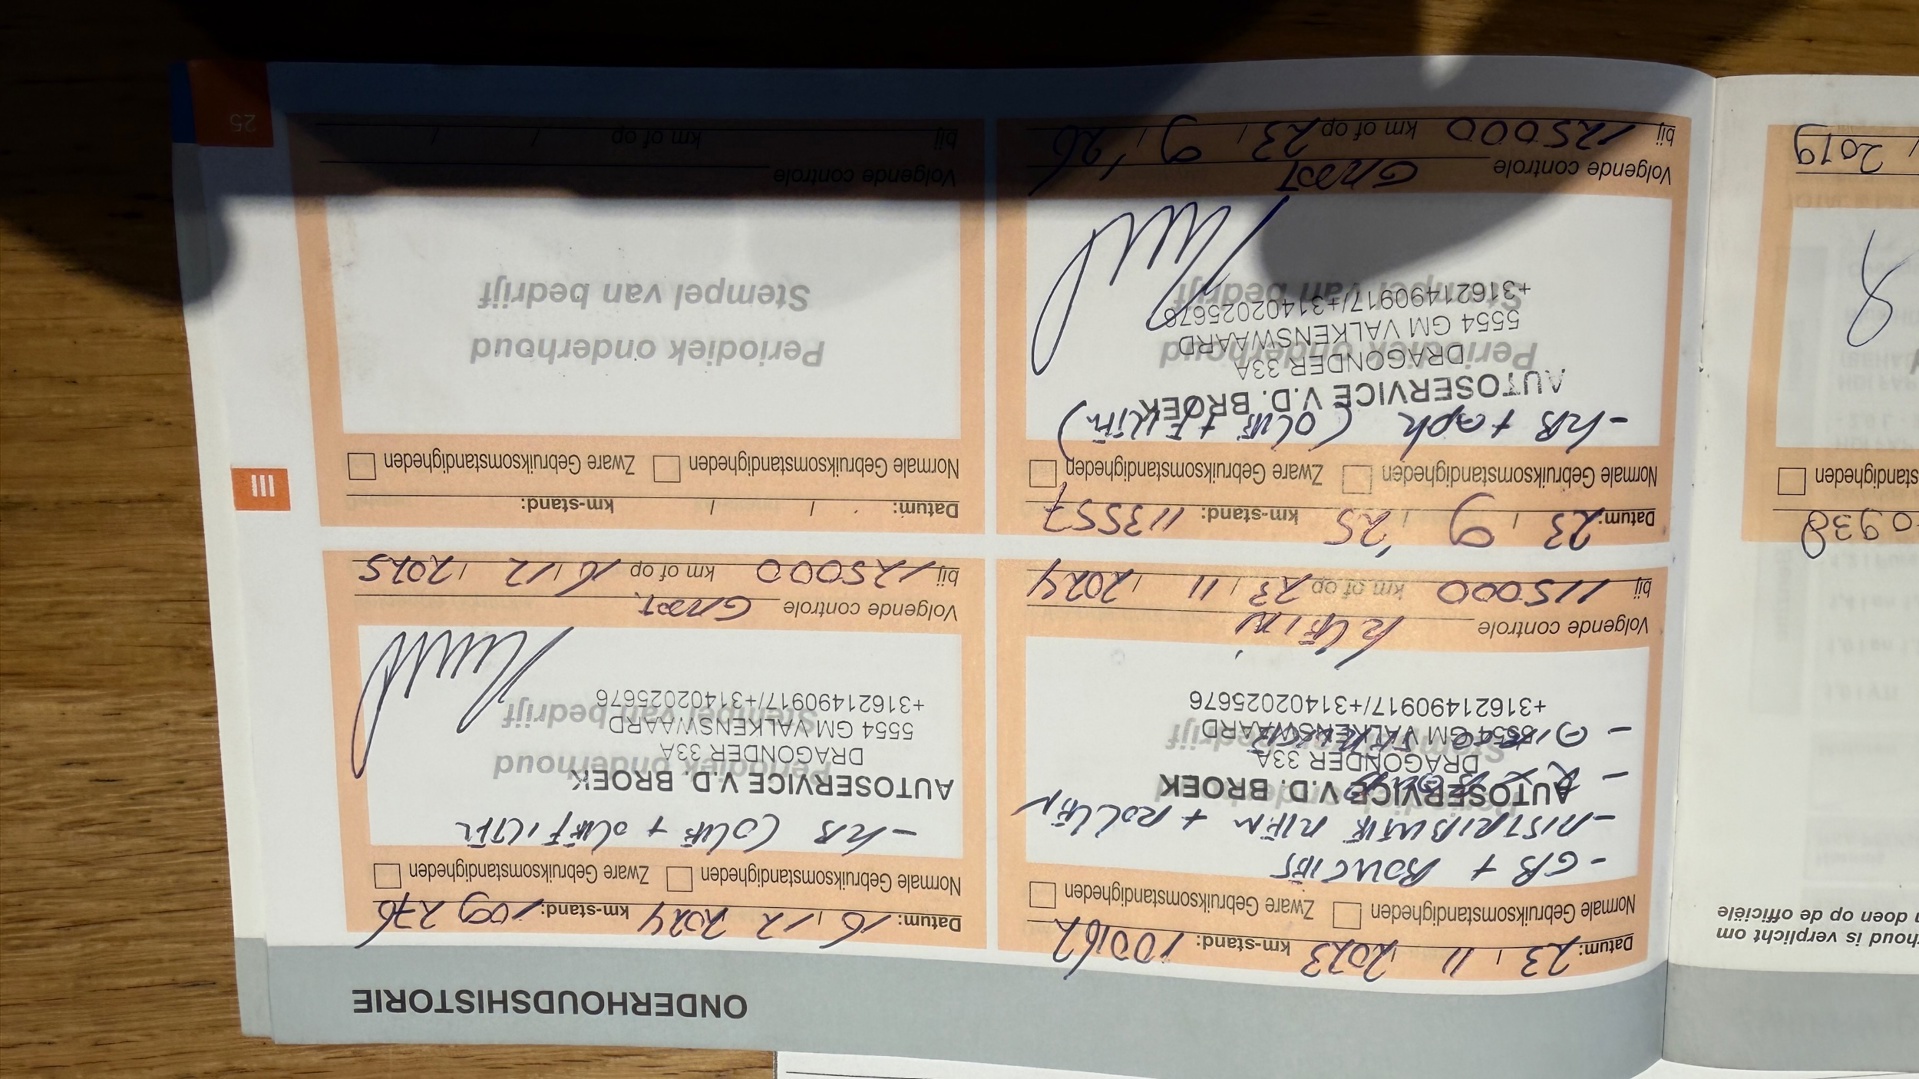 ONDERHOUDSHISTORIE
Datum: 23 / 11 / 2023 km-stand: 100162
Normale Gebruiksomstandigheden Zware Gebruiksomstandigheden
- GB + BOUGIES
- DISTRIBUTIE RIEM + ROLLEN
AUTOSERVICE V.D. BROEK
DRAGONDER 33A
5554 GM VALKENSWAARD
+31621490917/+31402025676
Volgende controle KLEIN
bij 115000 km of op 23 / 11 / 2024
Datum: 16 / 12 / 2024 km-stand: 109276
Normale Gebruiksomstandigheden Zware Gebruiksomstandigheden
- KB (OLIE + OLIEFILTER
Periodiek onderhoud
Stempel van bedrijf
AUTOSERVICE V.D. BROEK
DRAGONDER 33A
5554 GM VALKENSWAARD
+31621490917/+31402025676
Volgende controle GROOT
bij 125000 km of op 16 / 12 / 2025
Datum: 23 / 9 / '25 km-stand: 113557
Normale Gebruiksomstandigheden Zware Gebruiksomstandigheden
- KB + apk (OLIE + FILTER)
AUTOSERVICE V.D. BROEK
DRAGONDER 33A
Periodiek onderhoud
5554 GM VALKENSWAARD
+31621490917/+31402025676
Stempel van bedrijf
Volgende controle GROOT
bij 125000 km of op 23 / 9 / '26
Datum: / / km-stand:
Normale Gebruiksomstandigheden Zware Gebruiksomstandigheden
Periodiek onderhoud
Stempel van bedrijf
Volgende controle
bij km of op / /
III
25
verplicht om
doen op de officiële
0938
2019